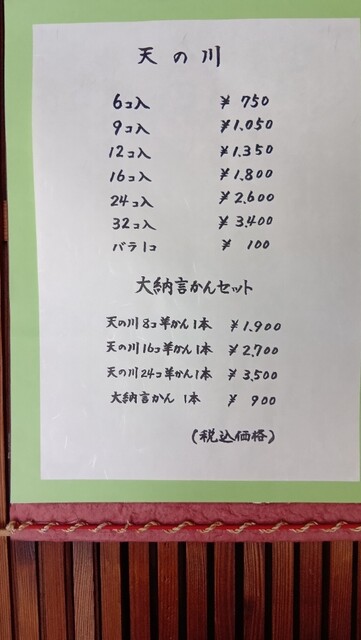 天の川
6コ入 ¥ 750
9コ入 ¥1.050
12コ入 ¥1.350
16コ入 ¥1.800
24コ入 ¥2.600
32コ入 ¥3.400
バラ1コ ¥ 100
大納言かんセット
天の川8コ羊かん1本 ¥1.900
天の川16コ羊かん1本 ¥2.700
天の川24コ羊かん1本 ¥3.500
大納言かん 1本 ¥ 900
(税込価格)